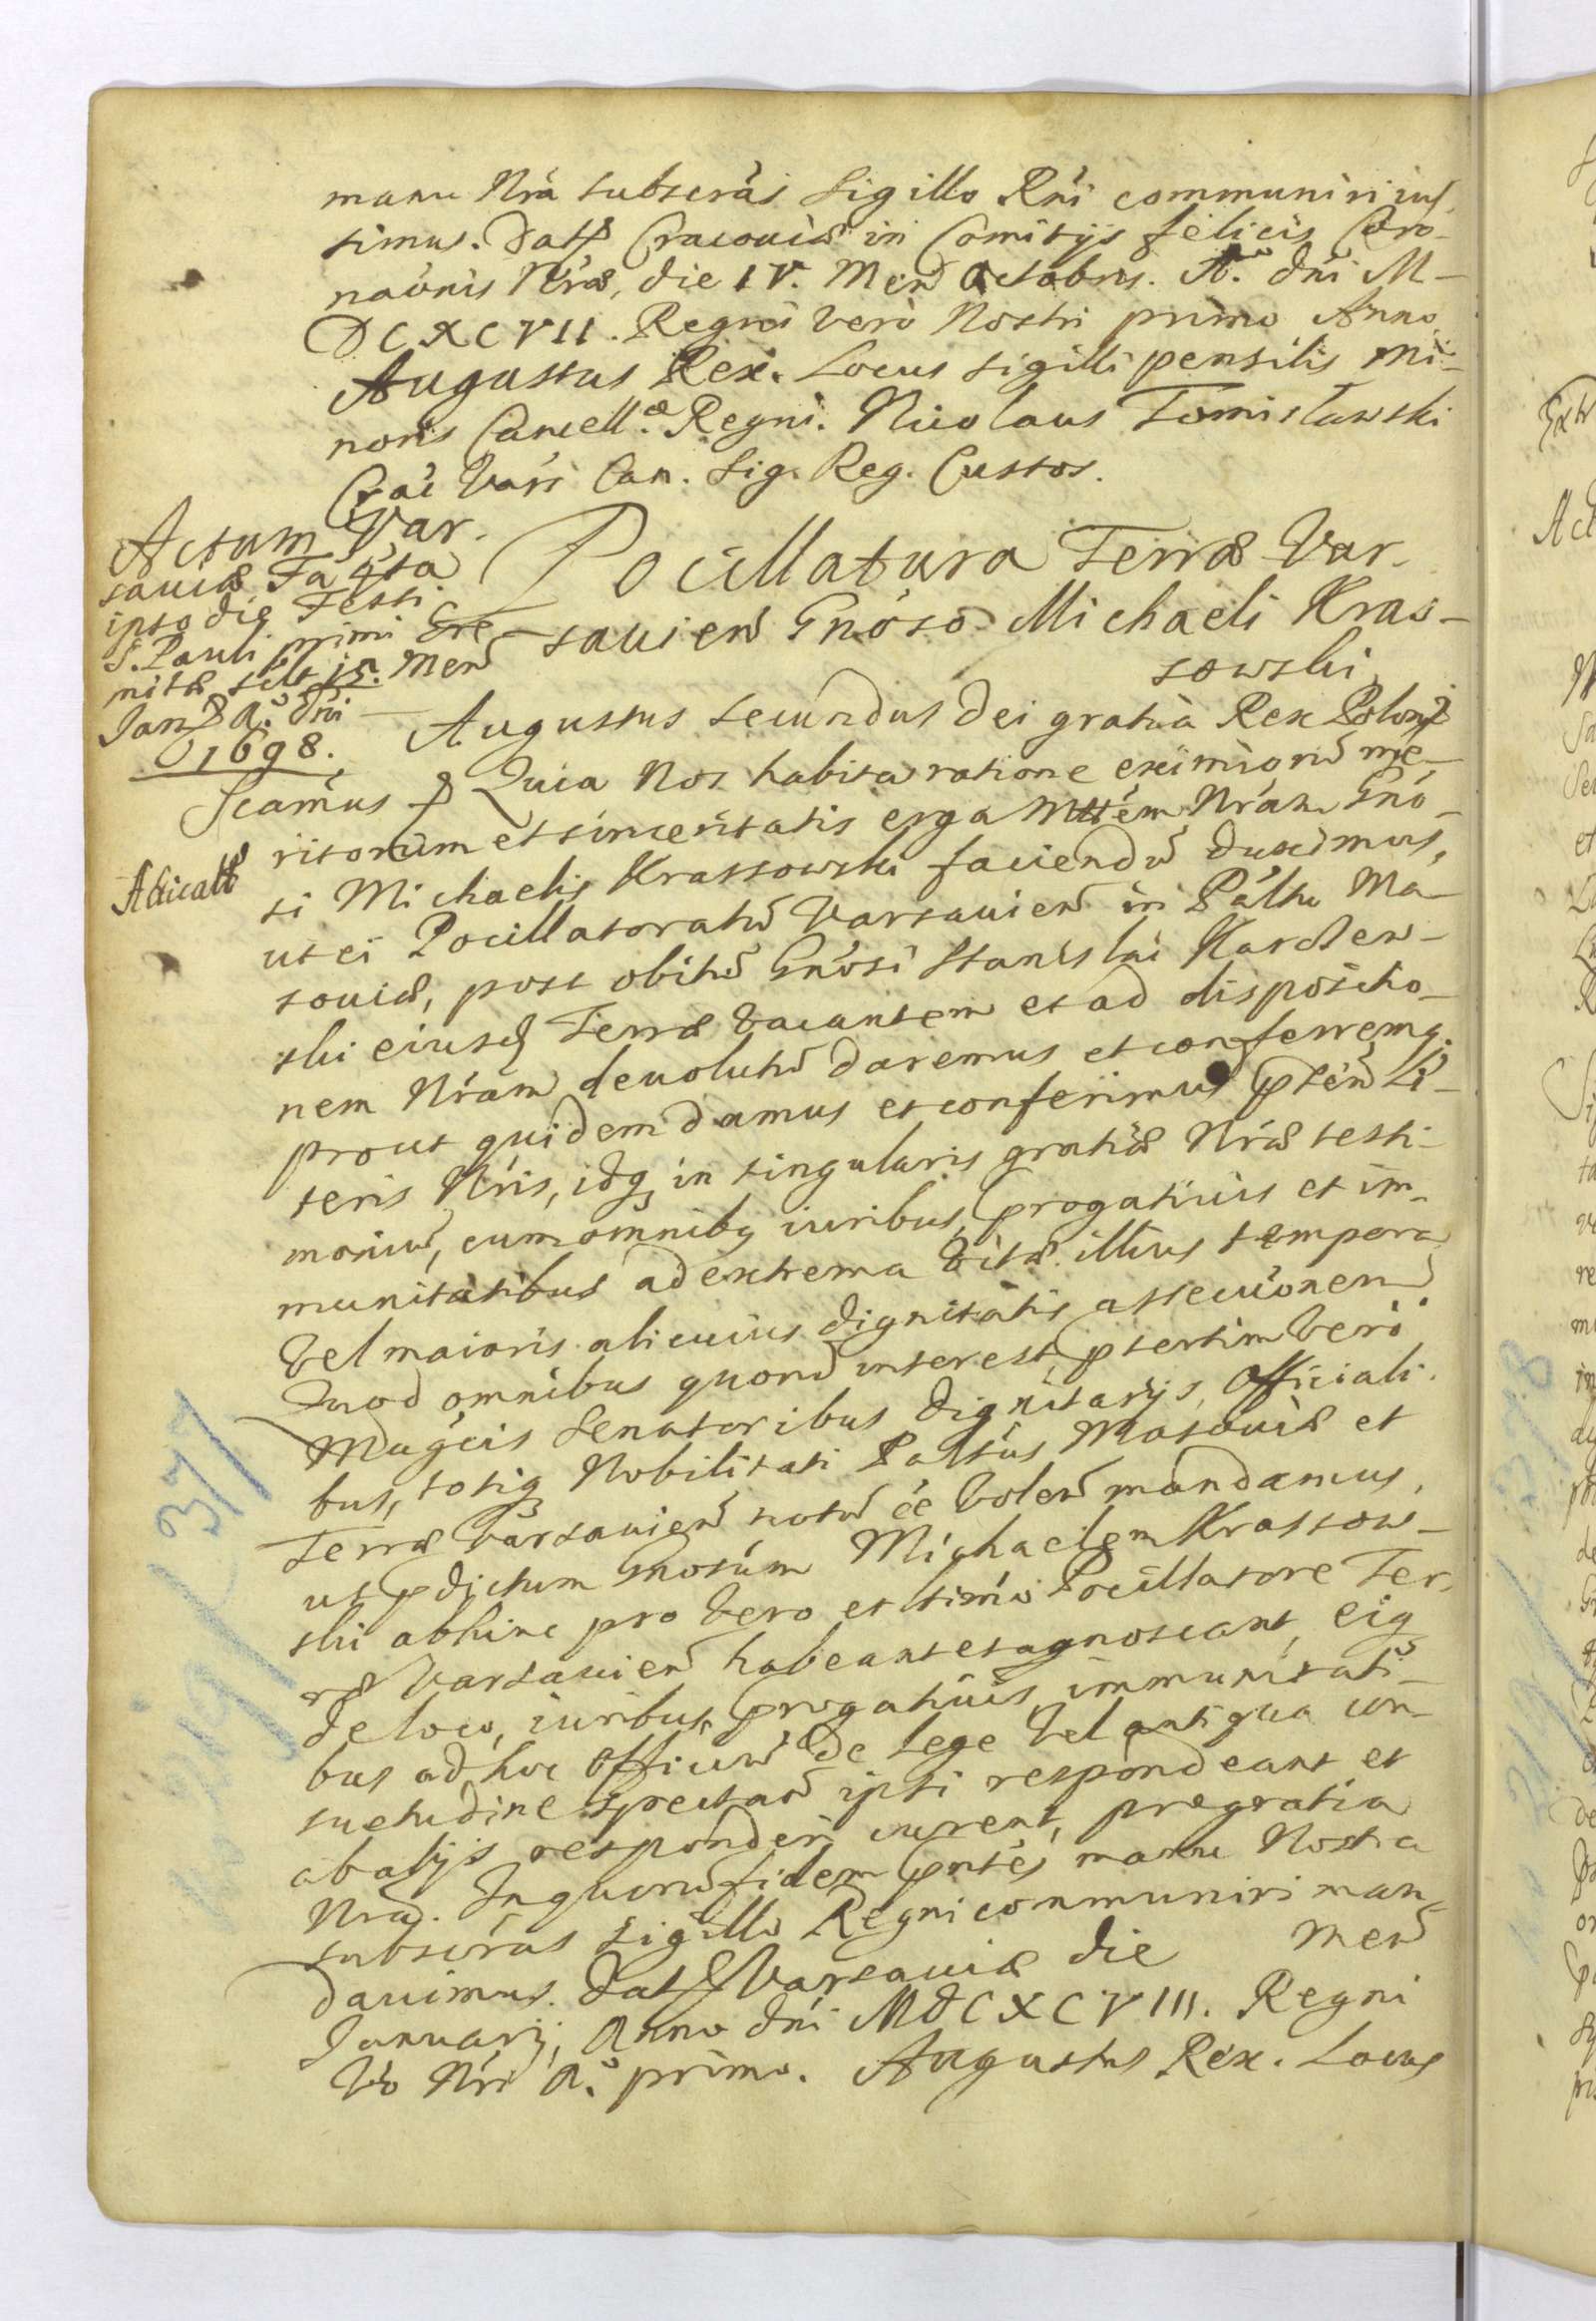 manu Nrá subscrás Sigillo Rńi communiri ius-
simus. Datt Cracoviæ in Comitijs felicis Coro-
naónis Nræ, die IV. Men Octobris. Aº. dńi M-
DCXCVII. Regni verò Nostri primo Anno
Augustus Rex. Locus sigilli pensilis mi-
noris Cancellæ. Regni. Nicolaus Tomisławski
Crać Varś Can. Sig. Reg. Custos.
Actum Var-
saviæ Faǵta
ipso die Festi
S. Pauli primi Ere-
mitæ scilt 15. Men
Janꝫ Aº. Dńi
1698.
Pocillatura Terræ Var-
savien Gnóso Michaeli Kras-
sowski.
Augustus secundus Dei gratià Rex Polonꝫ
Scamus
Quia Nos habita ratione eximiorũ me-
Aćticatt
ritorum et sinceritatis erga Mttém Nrám Gnó-
si Michaelis Krassowski faciendũ duximus,
ut ei Pocillatoratũ Varsavien in Páltu Ma-
soviæ, post obitũ Gnósi Stanislai Karczew-
ski eiusdꝫ Terræ vacantem et ad dispositio-
nem Nrám devolutũ daremus et conferremq.
prout quidem damus et conferimus pstén Li-
teris Nris, idqꝫ in singularis gratiæ Nræ testi-
moniũ, cum omnibqꝫ iuribus, progativis et im-
munitatibus ad extrema vitæ illius tempora
vel maioris alicuius dignitatis assecuónem
Quod omnibus quorũ interest, psertim verò
Maǵcis Senatoribus Dignitarijs, Officiali-
bus, totiqꝫ Nobilitati Paltús Masoviæ et
Terræ Varsavien notũ éé volen mandamus,
ut pdictum Gnosúm Michaelem Krassow-
ski abhinc pro vero et ltimó Pocillatore Ter-
ræ Varsavien habeant et agnoscant, eiqꝫ
de loco, iuribus, progativis, immunitati-
bus ad hoc Officiũ de lege vel antiqua con-
suetudine spectan ipsi respondeant et
ab alijs responderi curent, pro gratia
Nrá. In quorũ fidem pntés manu Nostra
subscrás sigillo Regni communiri man-
davimus. Datt Varsaviæ die Men
Januarij, Anno dńi MDCXCVIII. Regni
Vó Nri Aº. primo. Augustus Rex. Locus